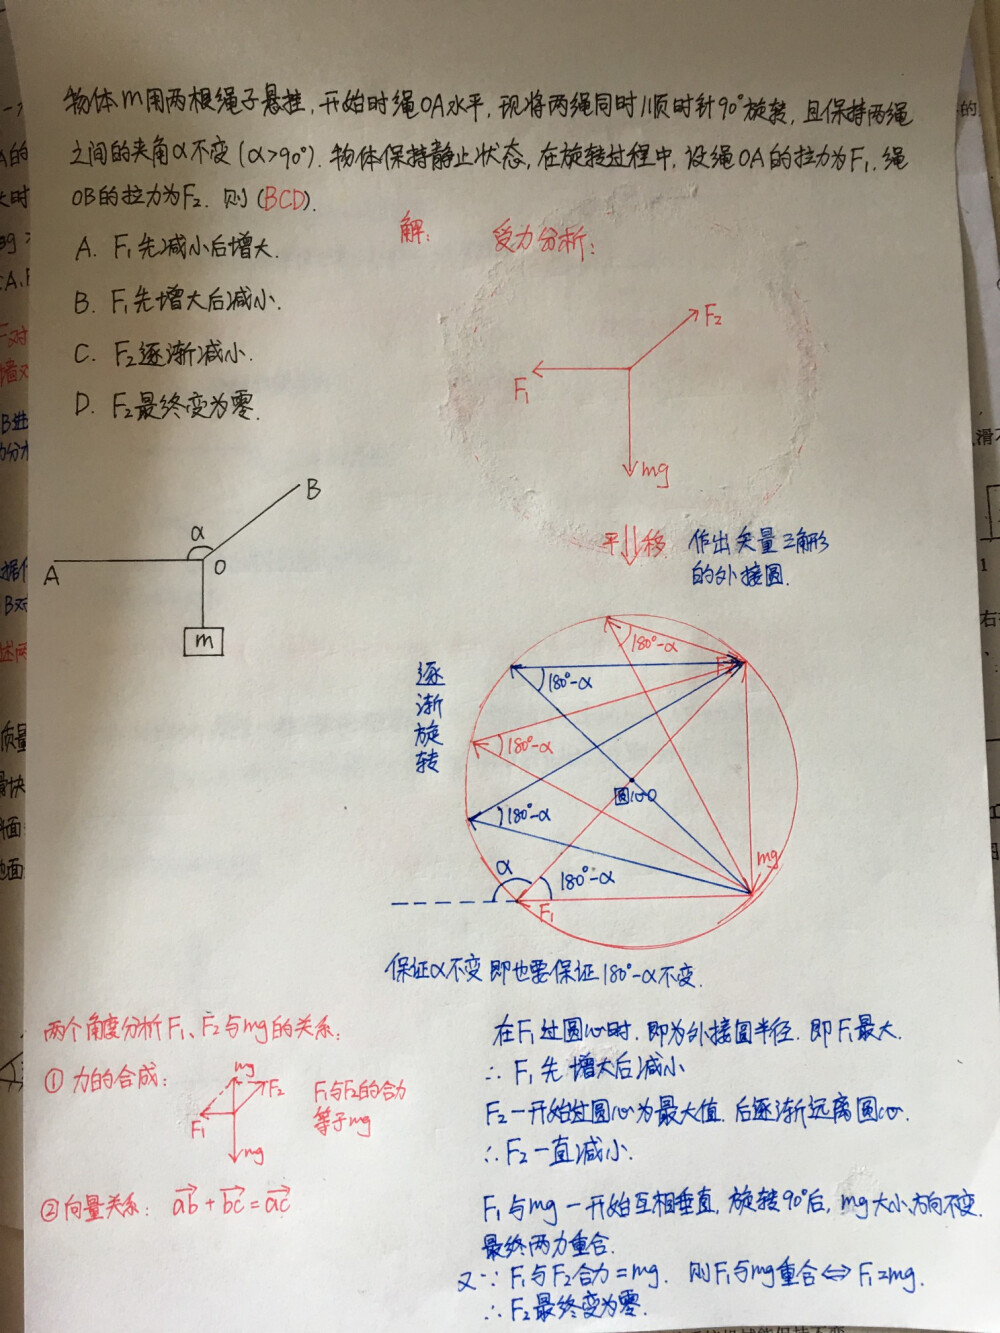 物体m用两根绳子悬挂,开始时绳OA水平,现将两绳同时顺时针90°旋转,且保持两绳
之间的夹角α不变(α>90°).物体保持静止状态,在旋转过程中,设绳OA的拉力为F₁,绳
OB的拉力为F₂.则(BCD).
A. F₁先减小后增大.
B. F₁先增大后减小.
C. F₂逐渐减小.
D. F₂最终变为零.
解: 受力分析:
F₂
F₁
mg
B
α
A
O
m
平移
作出矢量三角形
的外接圆.
逐渐旋转
180°-α
F₂
180°-α
180°-α
圆心O
180°-α
mg
α
180°-α
F₁
保证α不变即也要保证180°-α不变.
两个角度分析F₁、F₂与mg的关系:
① 力的合成:
mg
F₂
F₁
mg
F₁与F₂的合力
等于mg
②向量关系: ab+bc=ac
在F₁过圆心时.即为外接圆半径.即F₁最大.
∴F₁先增大后减小
F₂一开始过圆心为最大值.后逐渐远离圆心.
∴F₂一直减小.
F₁与mg一开始互相垂直,旋转90°后,mg大小、方向不变.
最终两力重合.
又∵F₁与F₂合力=mg. 则F₁与mg重合⇔F₁=mg.
∴F₂最终变为零.